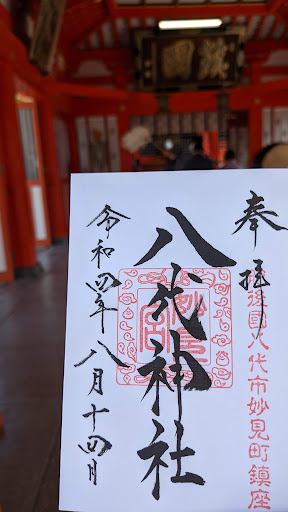 奉拝
肥後國八代市妙見町鎮座
八代神社
妙見宮
令和四年八月十四日